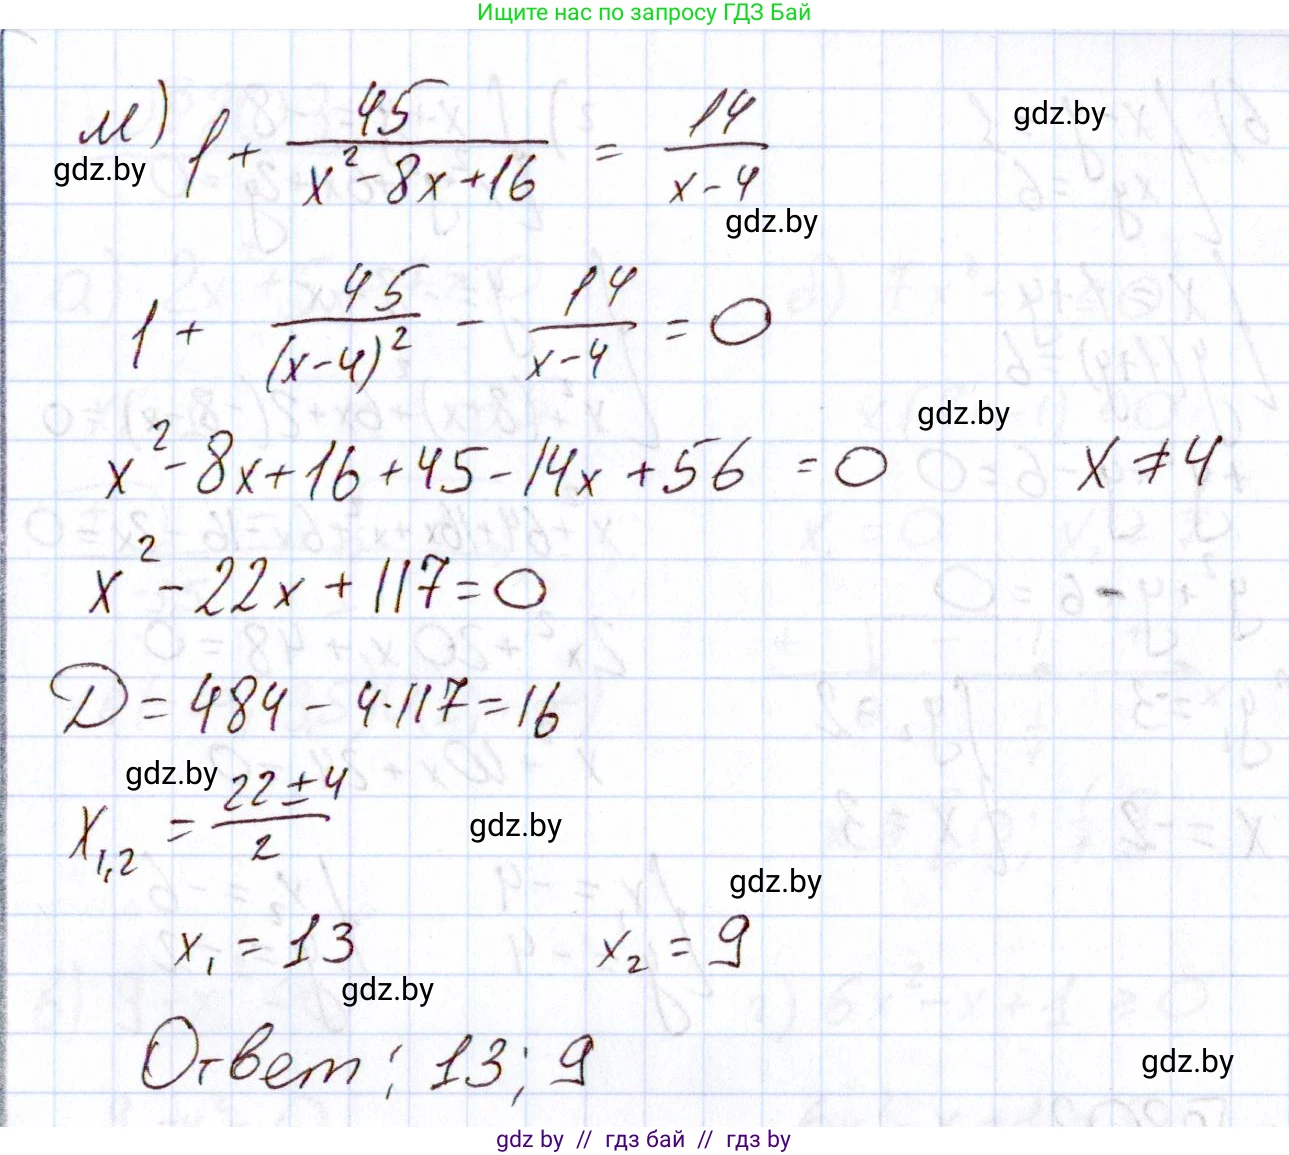 Ищите нас по запросу ГДЗ Бай
м) 1 + 45/(x² - 8x + 16) = 14/(x - 4)
gdz.by
gdz.by
gdz.by
1 + 45/(x - 4)² - 14/(x - 4) = 0
gdz.by
x² - 8x + 16 + 45 - 14x + 56 = 0 x ≠ 4
x² - 22x + 117 = 0
D = 484 - 4·117 = 16
gdz.by
x₁,₂ = (22 ± 4)/2
gdz.by
gdz.by
x₁ = 13 x₂ = 9
gdz.by
Ответ: 13; 9
gdz.by
gdz by // гдз бай // гдз by